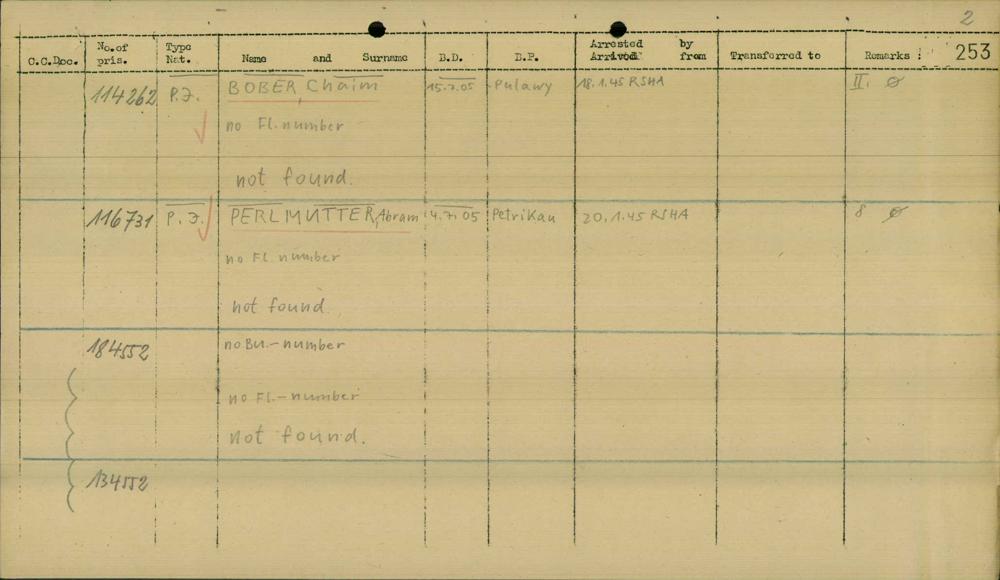 2
C.C.Doc. No.of pris. Type Nat. Name and Surname B.D. B.P. Arrested by Arrived from Transferred to Remarks : 253
114262 P.J. BOBER, Chaim 15.7.05 Pulawy 18.1.45 RSHA II. ø
no Fl. number
not found.
116731 P.J. PERLMUTTER, Abram 4.7.05 Petrikau 20.1.45 RSHA 8 ø
no Fl. number
not found.
184552 no Bu.-number
no Fl.-number
not found.
134552